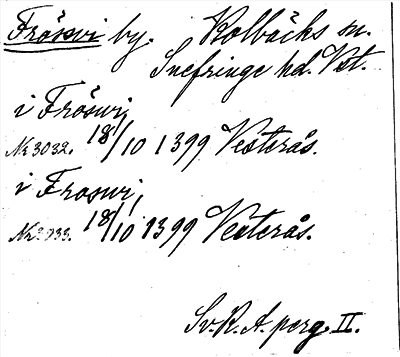 Frösvi by. Kolbäcks sn.
Snefringe hd. Vst.
i Fröswi
Nr 3032. 18/10 1399 Vesterås.
i Froswi
Nr 3033. 18/10 1399 Vesterås.
Sv. R. A. perg. II.